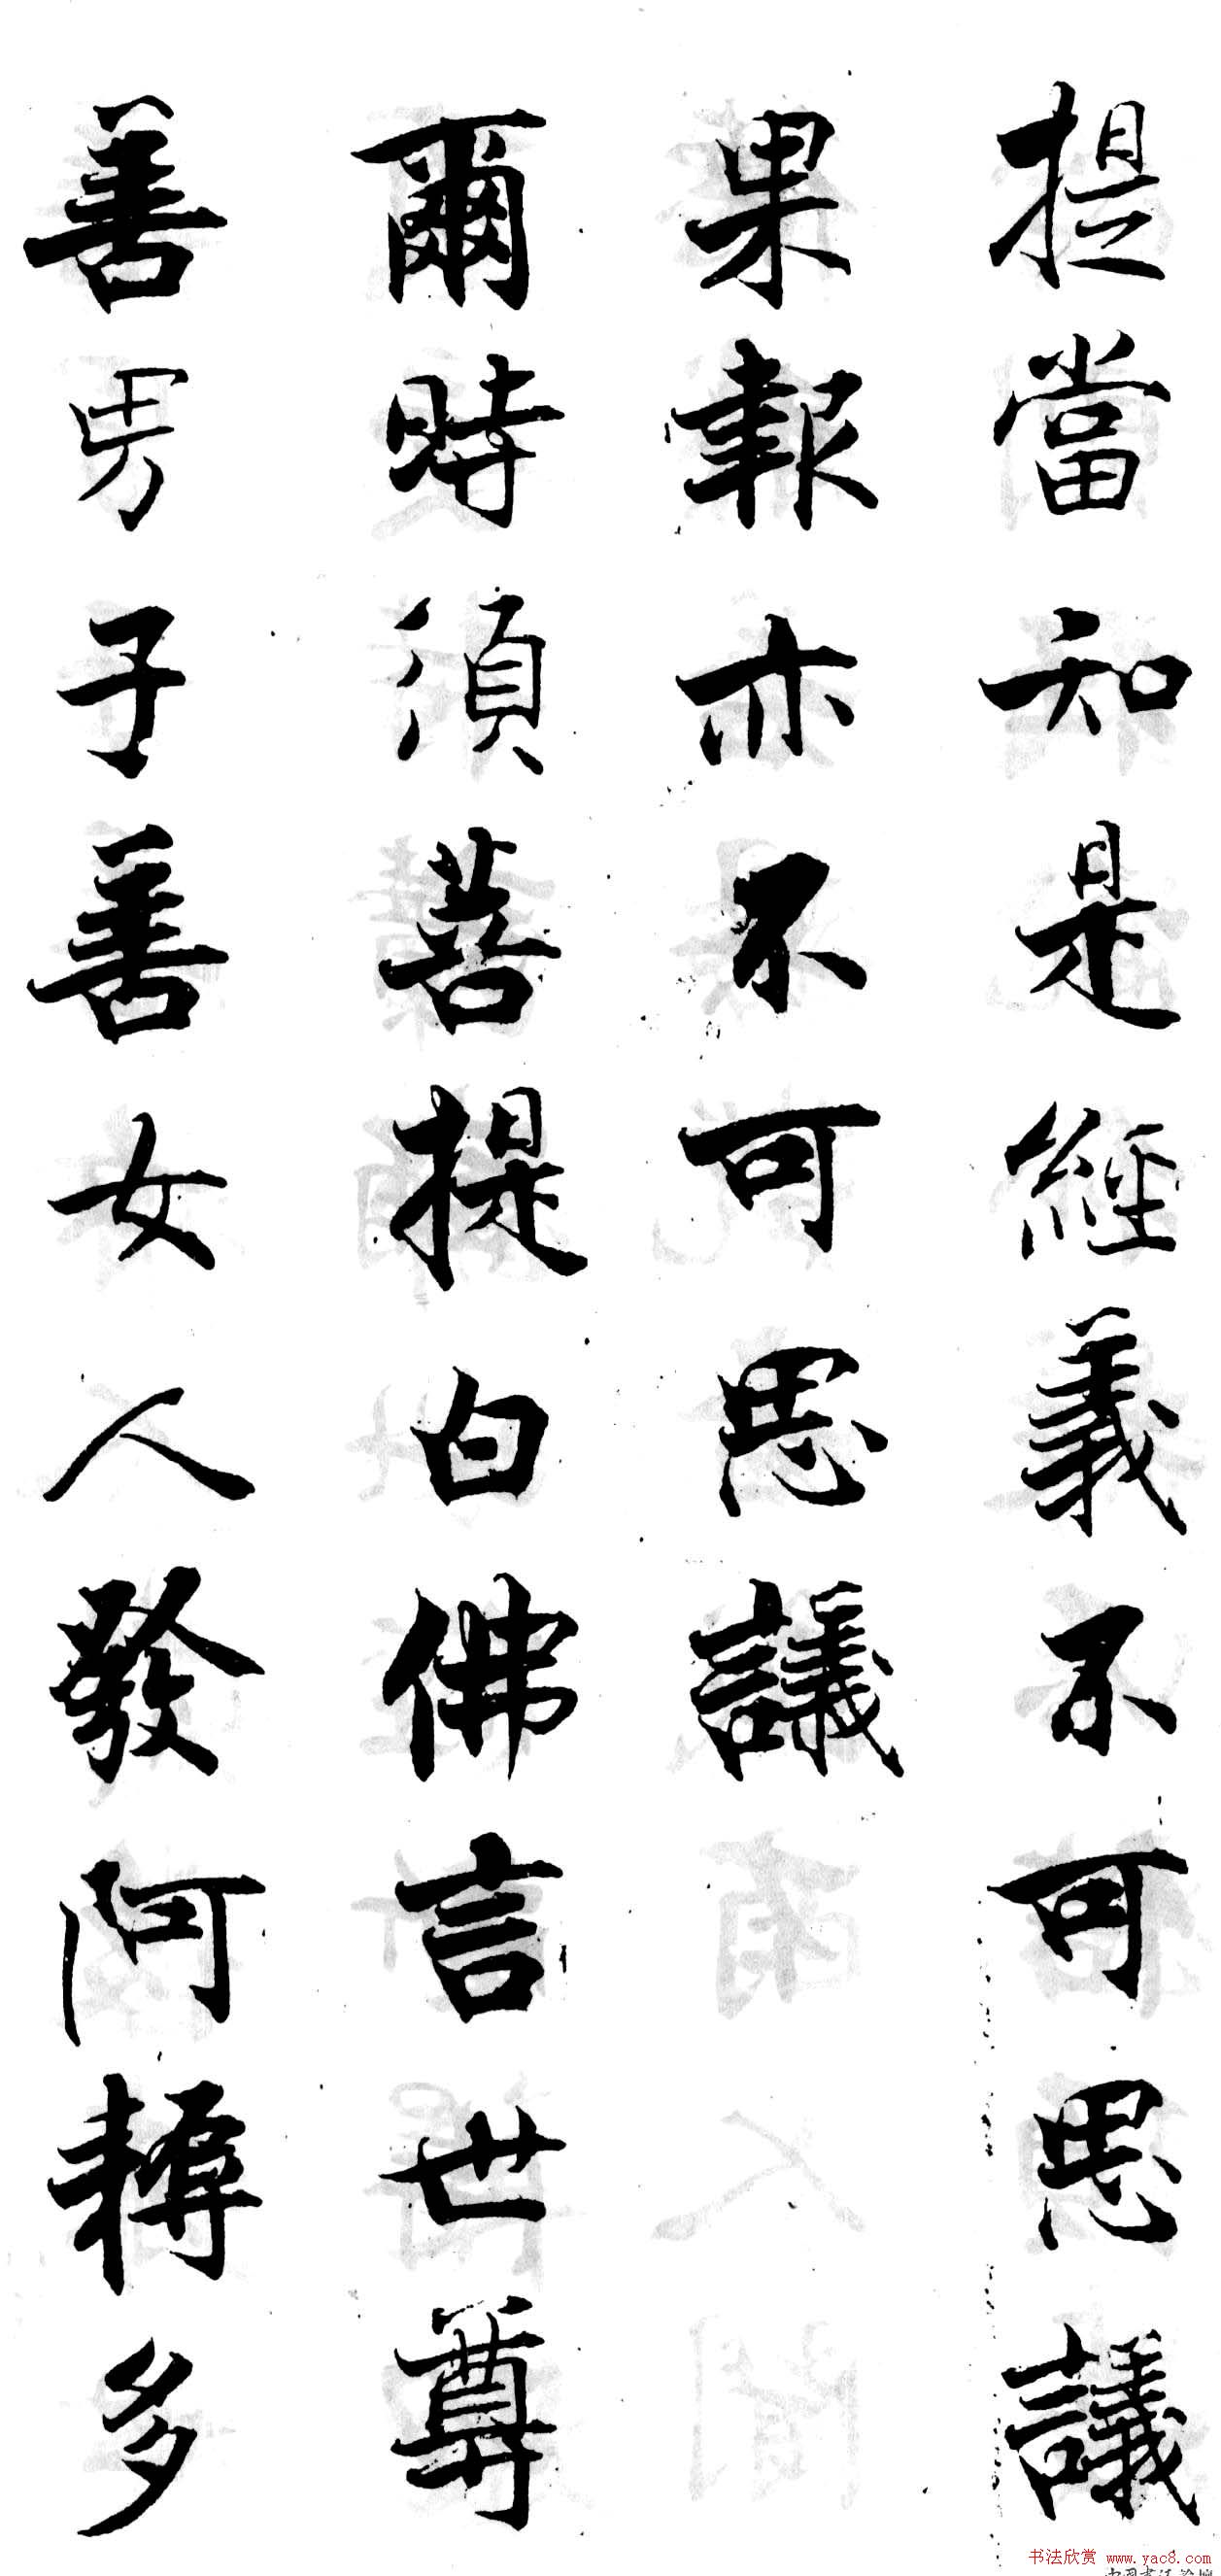 提當知是經義不可思議
果報亦不可思議
爾時須菩提白佛言世尊
善男子善女人發阿耨多
书法欣赏 www.yac8.com